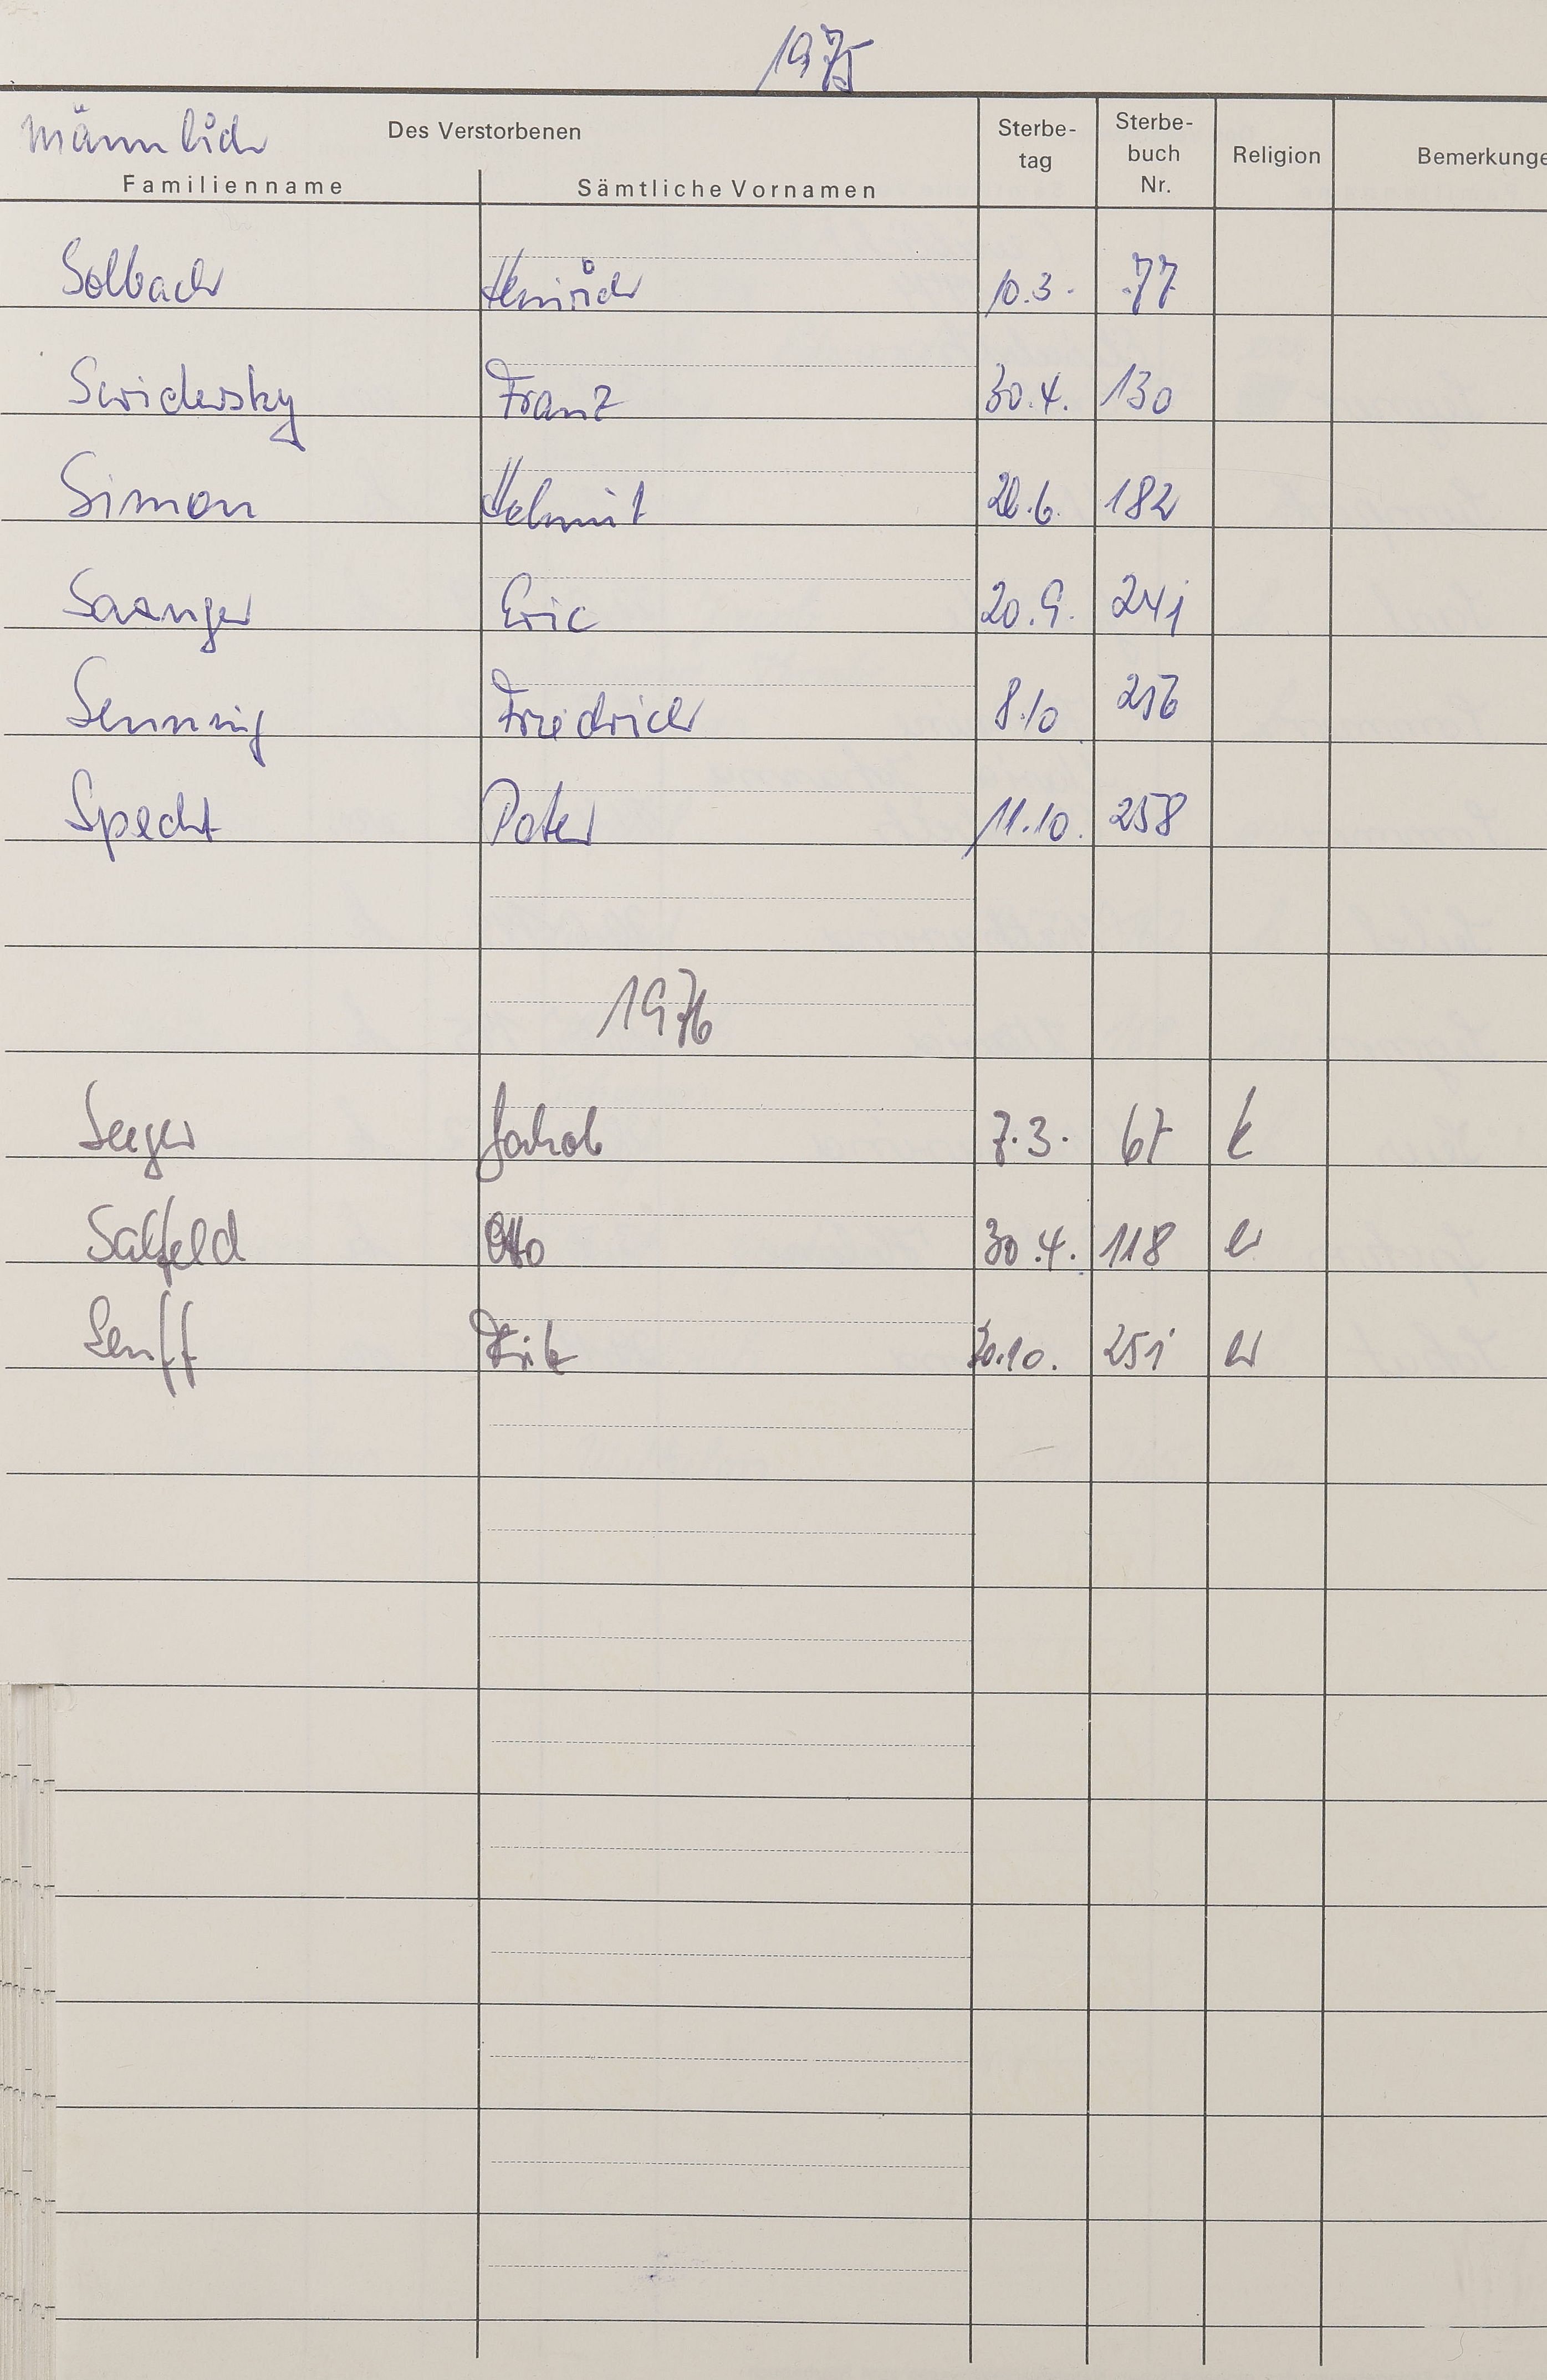 1975
männlich Des Verstorbenen Sterbe- Sterbe- Religion Bemerkunge
tag buch
Familienname Sämtliche Vornamen Nr.
Solbach Heinrich 10.3. 77
Swidersky Franz 30.4. 130
Simon Helmut 20.6. 182
Saanger Eric 20.9. 241
Senning Friedrich 8.10 256
Specht Peter 11.10. 258
1976
Seeger Jakob 7.3. 67 k
Salfeld Otto 30.4. 118 ev
Senff Fritz 30.10. 251 ev